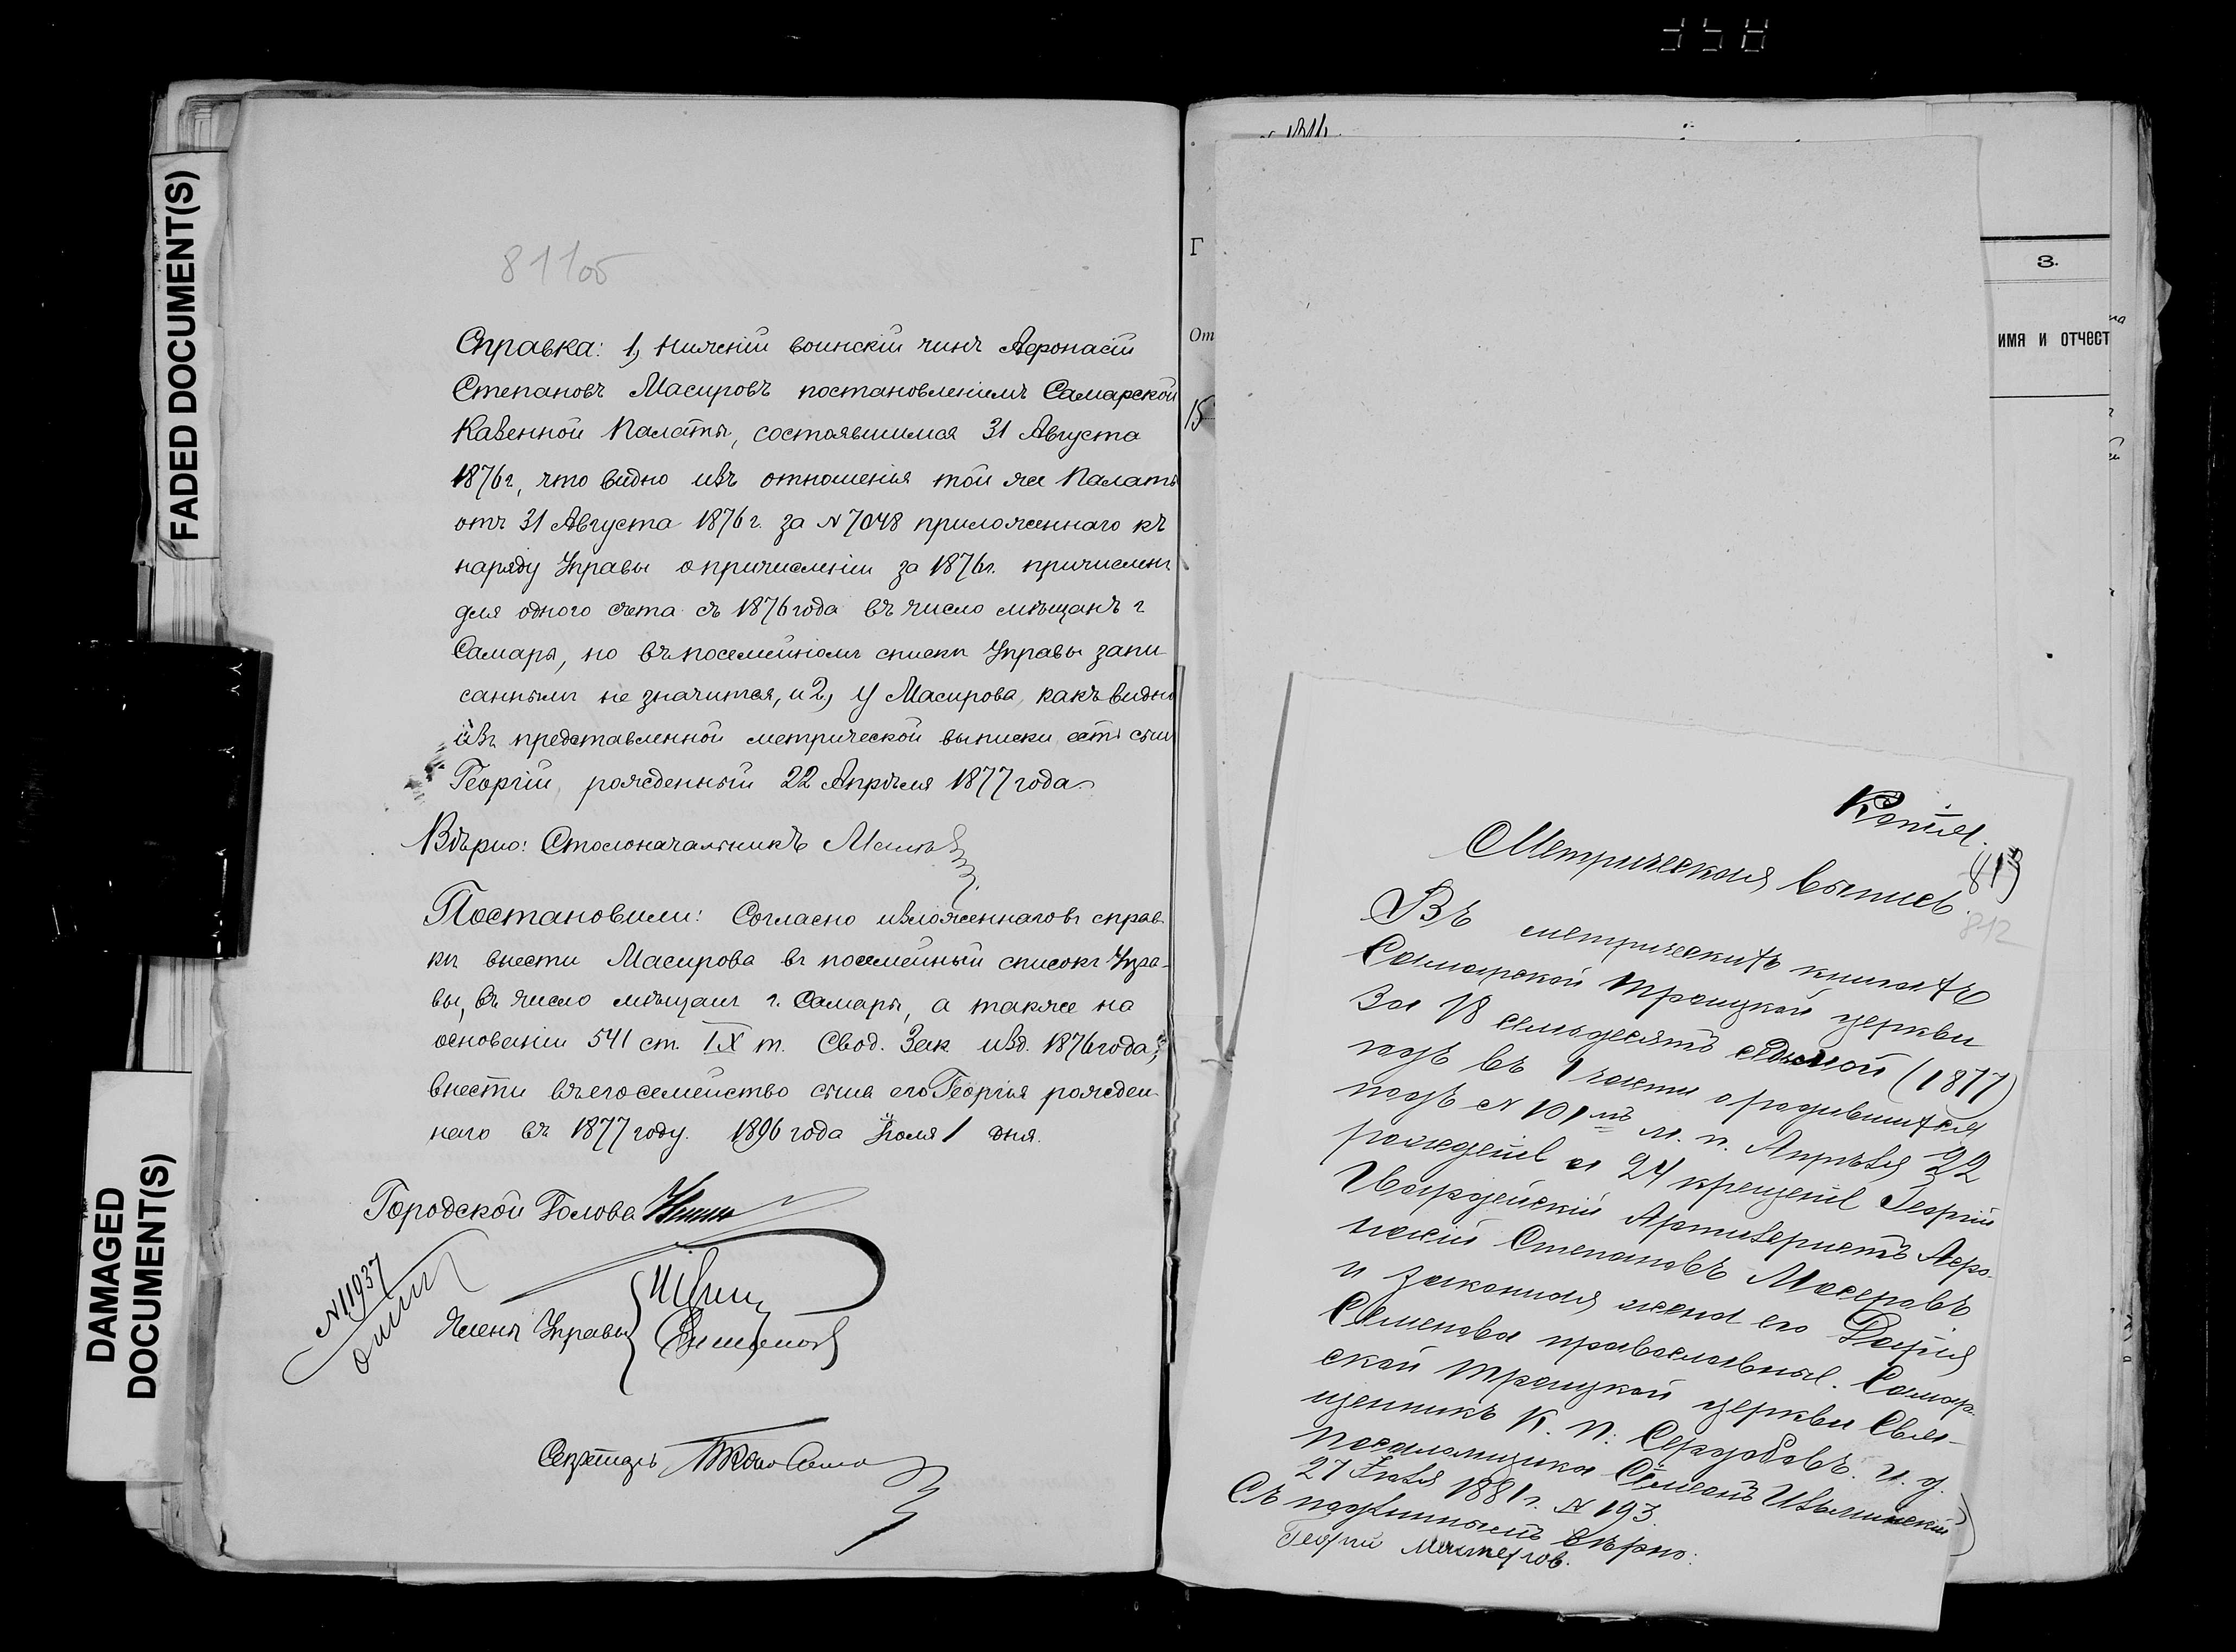 FADED DOCUMENT(S)
DAMAGED
DOCUMENT(S)
811об
Справка: 1, нижній воинскій чинъ Афонасій
Степановъ Масировъ постановленіемъ Самарской
Казенной Палаты, состоявшимся 31 Августа
1876 г, что видно изъ отношенія той же Палаты
отъ 31 Августа 1876 г. за № 7048 приложеннаго къ
наряду Управы о причисленіи за 1876 г. причисленъ
для одного счета съ 1876 года въ число мѣщанъ г
Самары, но въ посемейномъ спискѣ Управы запи
саннымъ не значится, и 2, У Масирова, какъ видно
изъ представленной метрической выписки, есть сынъ
Георгій, рожденный 22 Апрѣля 1877 года
Вѣрно: Столоначальникъ
Постановили: Согласно изложеннаго въ справ
кѣ внести Масирова въ посемейный списокъ Упра-
вы, въ число мѣщанъ г. Самары, а также на
основаніи 541 ст. IX т. Свод. Зак. изд. 1876 года,
внести въ его семейство сына его Георгія рожден
наго въ 1877 году. 1896 года Іюля 1 дня.
Городской Голова
№ 11937
Члены Управы
Секретарь
Г
От
15
3.
имя и отчест
Копія.
813
Метрическая выпись.
812
Въ метрическихъ книгахъ
Самарской Троицкой церкви
За 18 семьдесятъ седьмой (1877)
годъ въ 1 части о родившихся
подъ № 101мъ м. п. Апрѣля 22
рожденъ а 24 крещенъ Георгій
Гвардейскій Артилеристъ Афо-
насій Степановъ Масеровъ
и законная жена его Дарія
Семенова православные. Самар-
ской Троицкой церкви Свя-
щенникъ К. П. Сердобовъ. И. д.
Псаломщика Семеонъ
27 Іюля 1881 г. № 193.
Съ подлиннымъ вѣрно:
Георгій